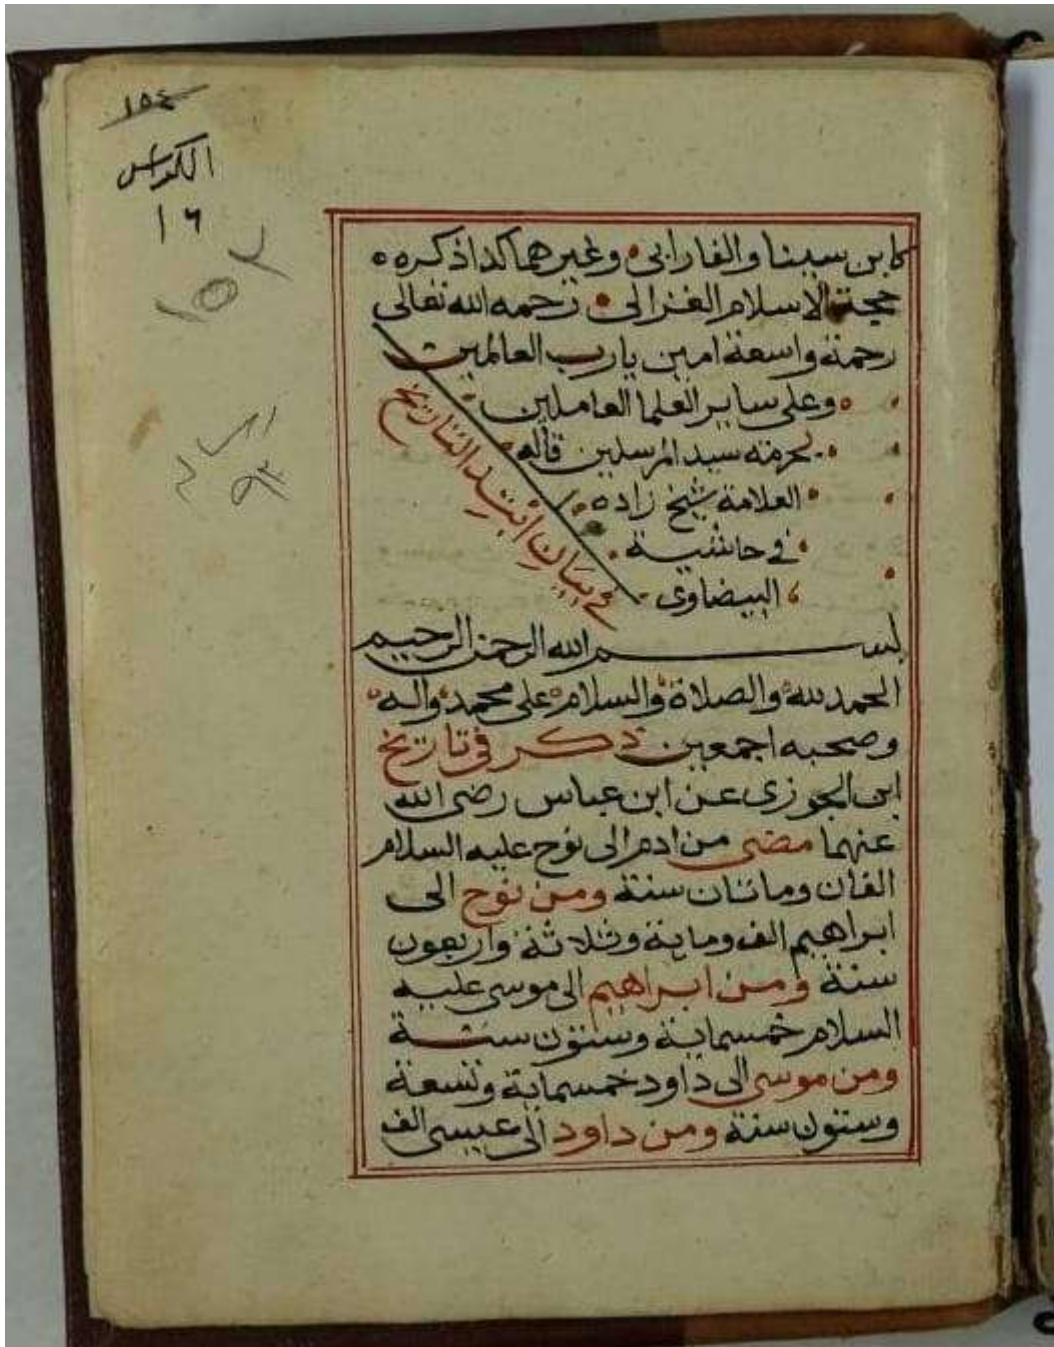 ١٥٤
الكراس
١٦
١٥٢
كابن سينا والفارابي وغيرهما كذا ذكره
حجة الاسلام الغزالي رحمه الله تعالى
رحمة واسعة امين يارب العالمين
وعلى ساير العلما العاملين
بحرمة سيد المرسلين قاله
العلامة شيخ زاده
في حاشية
البيضاوى
في بيان ابتداء التاريخ
بسم الله الرحمن الرحيم
الحمد لله والصلاة والسلام على محمد واله
وصحبه اجمعين ذكر في تاريخ
ابن الجوزى عن ابن عباس رضى الله
عنهما مضى من ادم الى نوح عليه السلام
الفان وماتان سنة ومن نوح الى
ابراهيم الف وماية وثلاثة واربعون
سنة ومن ابراهيم الى موسى عليه
السلام خمسماية وستون سنة
ومن موسى الى داود خمسماية وتسعة
وستون سنة ومن داود الى عيسى الف